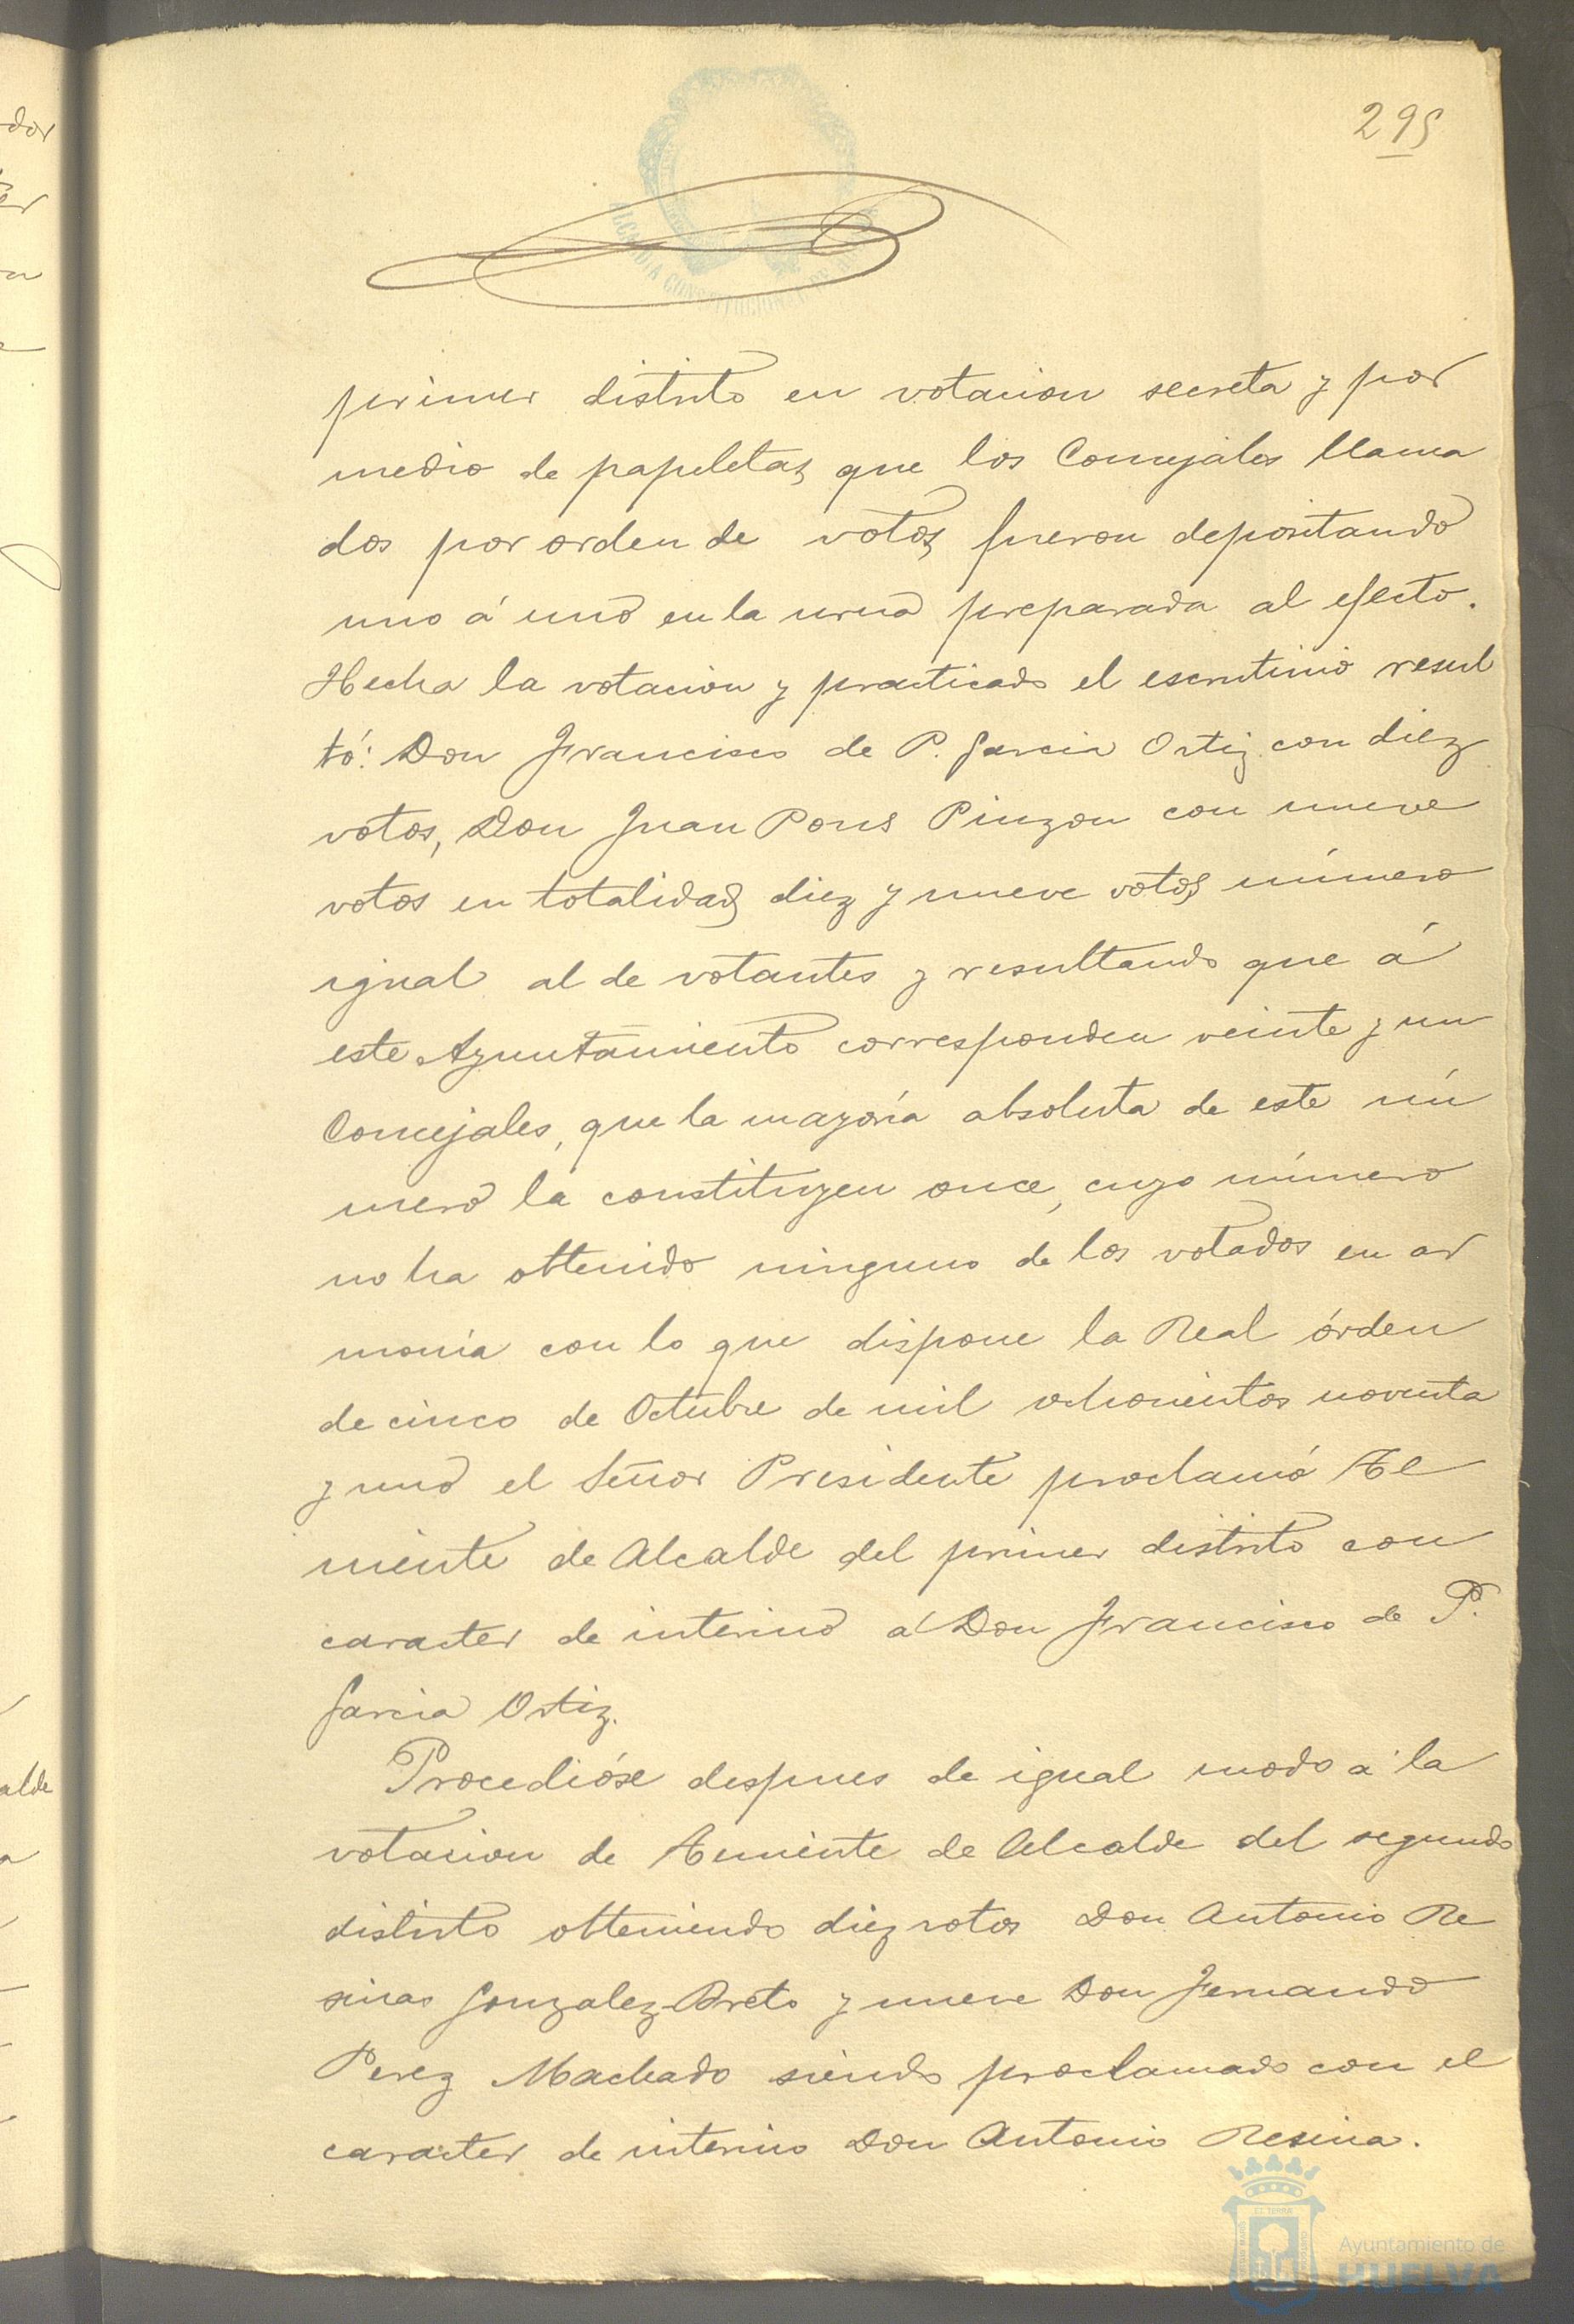 295
ALCALDIA CONSTITUCIONAL
primer distrito en votacion secreta y por
medio de papeletas que los Concejales llama
dos por orden de votos fueron depositando
uno á uno en la urna preparada al efecto.
Hecha la votacion y practicado el escrutinio resul
tó: Don Francisco de P. Garcia Ortiz con diez
votos, Don Juan Pons Pinzon con nueve
votos en totalidad diez y nueve votos número
igual al de votantes y resultando que á
este Ayuntamiento corresponden veinte y un
Concejales, que la mayoría absoluta de este nú
mero la constituyen once, cuyo número
no ha obtenido ninguno de los votados en ar
monía con lo que dispone la Real órden
de cinco de Octubre de mil ochocientos noventa
y uno el Señor Presidente proclamó Te
niente de Alcalde del primer distrito con
caracter de interino á Don Francisco de P.
Garcia Ortiz.
Procedióse despues de igual modo á la
votacion de Teniente de Alcalde del segundo
distrito obteniendo diez votos Don Antonio Re
sinas Gonzalez Prieto y nueve Don Fernando
Perez Machado siendo proclamado con el
caracter de interino Don Antonio Resina.
Ayuntamiento de
HUELVA